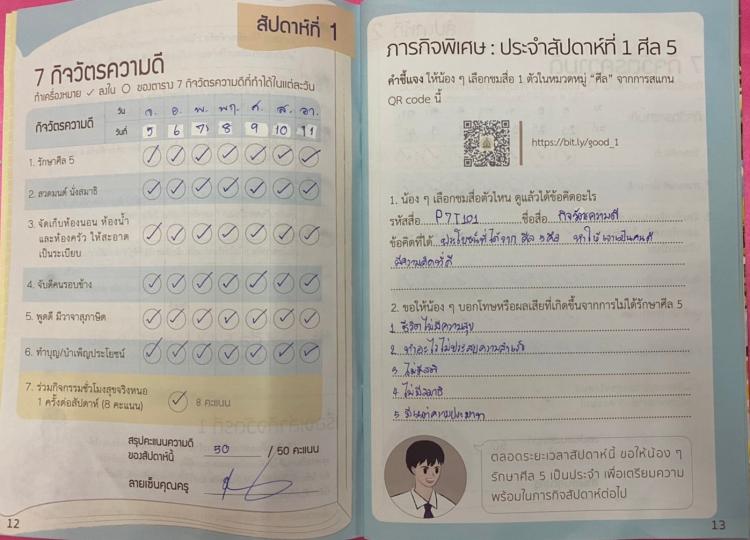 สัปดาห์ที่ 1
7 กิจวัตรความดี
ทำเครื่องหมาย ✓ ลงใน ○ ของตาราง 7 กิจวัตรความดีที่ทำได้ในแต่ละวัน
กิจวัตรความดี วัน จ. อ. พ. พฤ. ศ. ส. อา.
วันที่ 5 6 7 8 9 10 11
1. รักษาศีล 5 ✓ ✓ ✓ ✓ ✓ ✓ ✓
2. สวดมนต์ นั่งสมาธิ ✓ ✓ ✓ ✓ ✓ ✓ ✓
3. จัดเก็บห้องนอน ห้องน้ำ
และห้องครัว ให้สะอาด
เป็นระเบียบ ✓ ✓ ✓ ✓ ✓ ✓ ✓
4. จับดีคนรอบข้าง ✓ ✓ ✓ ✓ ✓ ✓ ✓
5. พูดดี มีวาจาสุภาษิต ✓ ✓ ✓ ✓ ✓ ✓ ✓
6. ทำบุญ/บำเพ็ญประโยชน์ ✓ ✓ ✓ ✓ ✓ ✓ ✓
7. ร่วมกิจกรรมชั่วโมงสุขจริงหนอ
1 ครั้งต่อสัปดาห์ (8 คะแนน) ✓ 8 คะแนน
สรุปคะแนนความดี
ของสัปดาห์นี้ 50 / 50 คะแนน
ลายเซ็นคุณครู
12
ภารกิจพิเศษ : ประจำสัปดาห์ที่ 1 ศีล 5
คำชี้แจง ให้น้อง ๆ เลือกชมสื่อ 1 ตัวในหมวดหมู่ “ศีล” จากการสแกน
QR code นี้
https://bit.ly/good_1
1. น้อง ๆ เลือกชมสื่อตัวไหน ดูแล้วได้ข้อคิดอะไร
รหัสสื่อ P7T101 ชื่อสื่อ กิจวัตรความดี
ข้อคิดที่ได้ ประโยชน์ที่ได้จาก ศีล 5 คือ ทำให้ เราเป็นคนดี
มีความคิดที่ดี
2. ขอให้น้อง ๆ บอกโทษหรือผลเสียที่เกิดขึ้นจากการไม่ได้รักษาศีล 5
1 ชีวิตไม่มีความสุข
2 ทำอะไรไม่ประสบความสำเร็จ
3 ไม่มีสติ
4 ไม่มีสมาธิ
5 มีแต่ความประมาท
ตลอดระยะเวลาสัปดาห์นี้ ขอให้น้อง ๆ
รักษาศีล 5 เป็นประจำ เพื่อเตรียมความ
พร้อมในภารกิจสัปดาห์ต่อไป
13